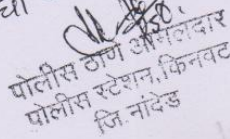 ची
पोलीस ठाणे अंमलदार
पोलीस स्टेशन, किनवट
जि. नांदेड